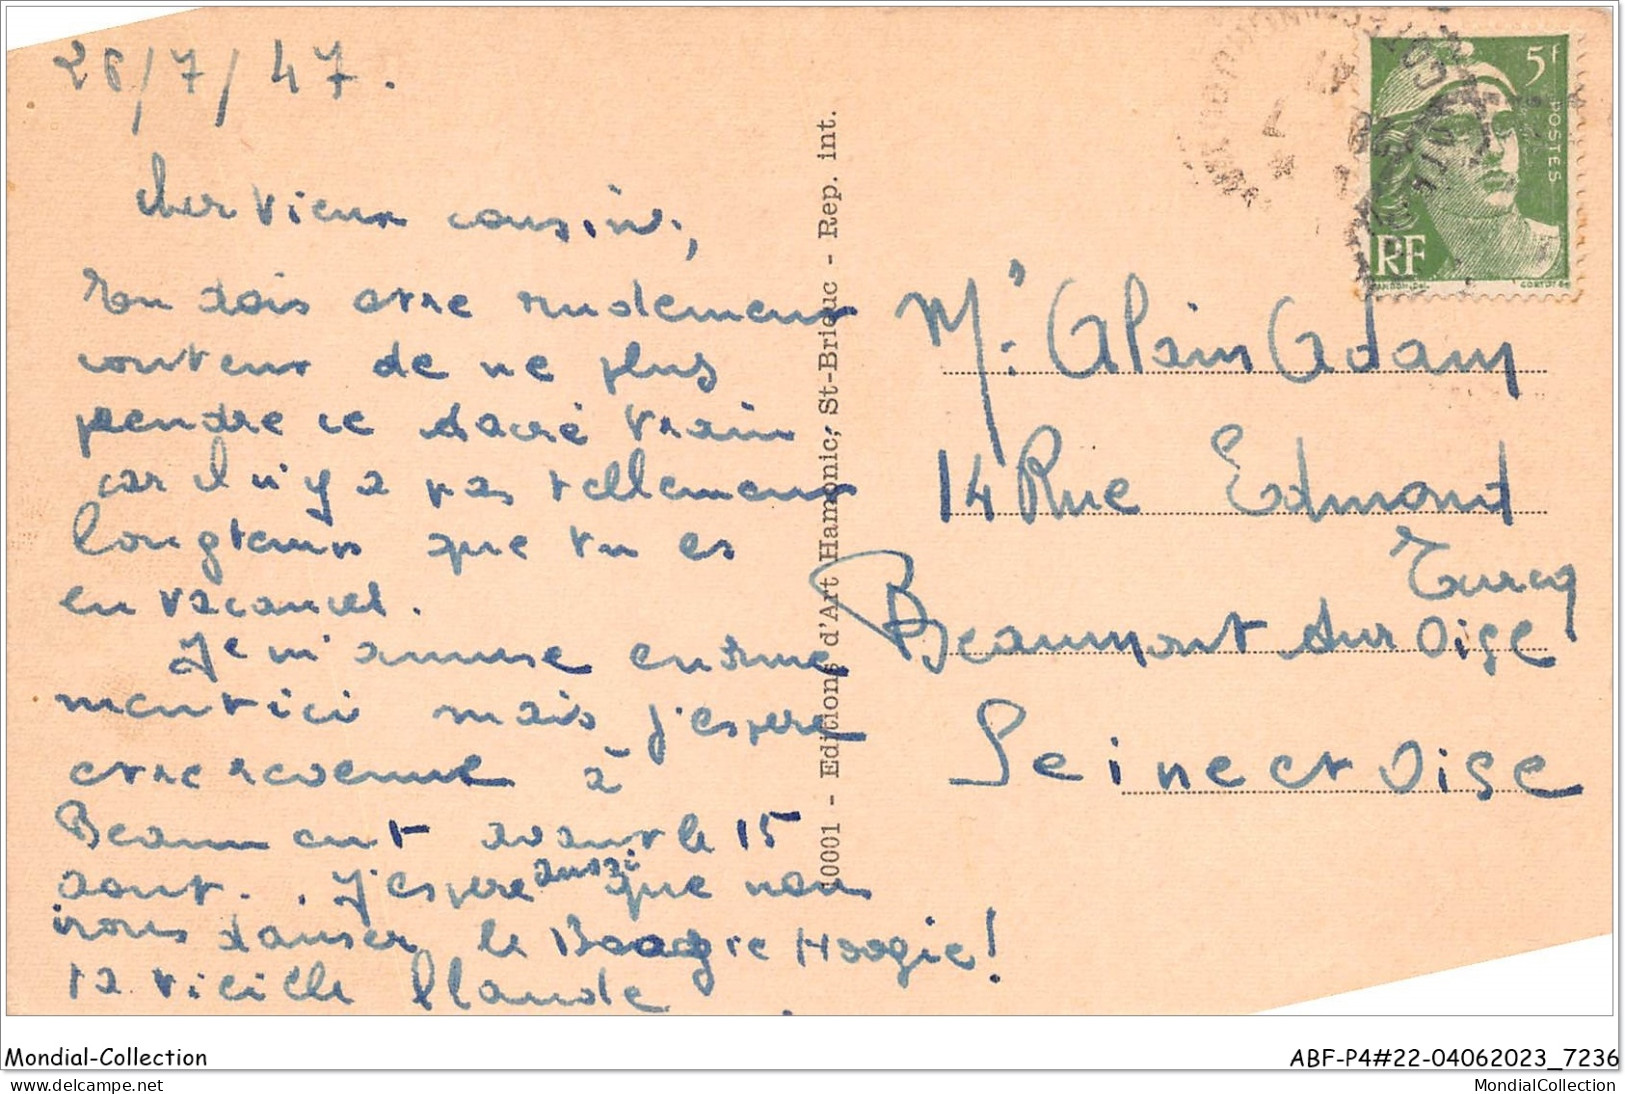 28/7/47.
Cher vieux cousin,
Ton dois etre rudement
content de ne plus
prendre ce sacré train
car il n'y a pas tellement
longtemps que tu es
en vacances.
Je m'amuse enorme
ment ici mais j'espere
etre revenue à
Beaumont avant le 15
aout. J'espere aussi que nous
irons danser le Boogie Hoogie!
ta vieille Claude
10001 - Editions d'Art Hamonic, St-Brieuc - Rep. int.
5f
POSTES
RF
GANDON del.
CORTOT sc
Mr. Alain Adam
14 Rue Edmond
Turcq
Beaumont sur Oise
Seine et Oise
Mondial-Collection
ABF-P4#22-04062023_7236
www.delcampe.net
MondialCollection